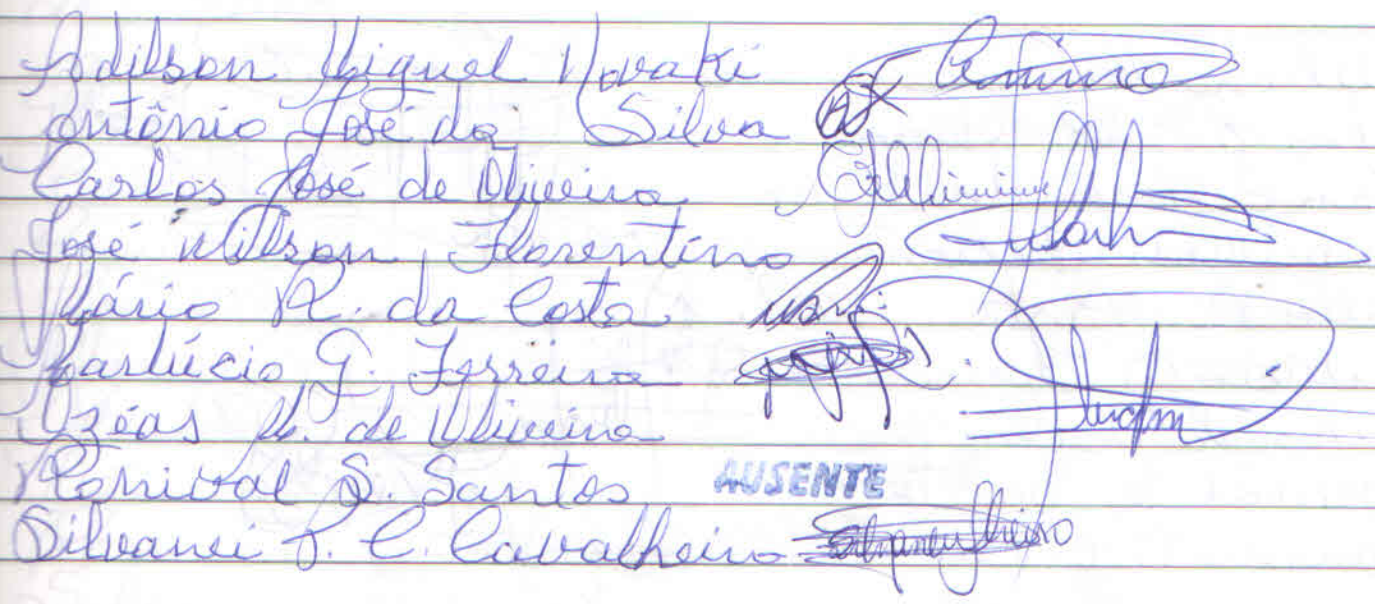 Adilson Miguel Novaki
Antônio José da Silva
Carlos José de Oliveira
José Nilson Florentino
Mário R. da Costa
Marlúcio G. Ferreira
Ozéas M. de Oliveira
Ronival S. Santos AUSENTE
Silvanei P. C. Cavalheiro